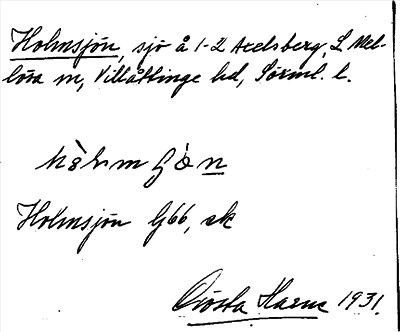 Holmsjön, sjö å 1-2 Axelsberg, L Mel-
lösa sn, Villåttinge hd, Sörml. l.
hòlmʃö̀n
Holmsjön G66, ek
Gösta Harne 1931.